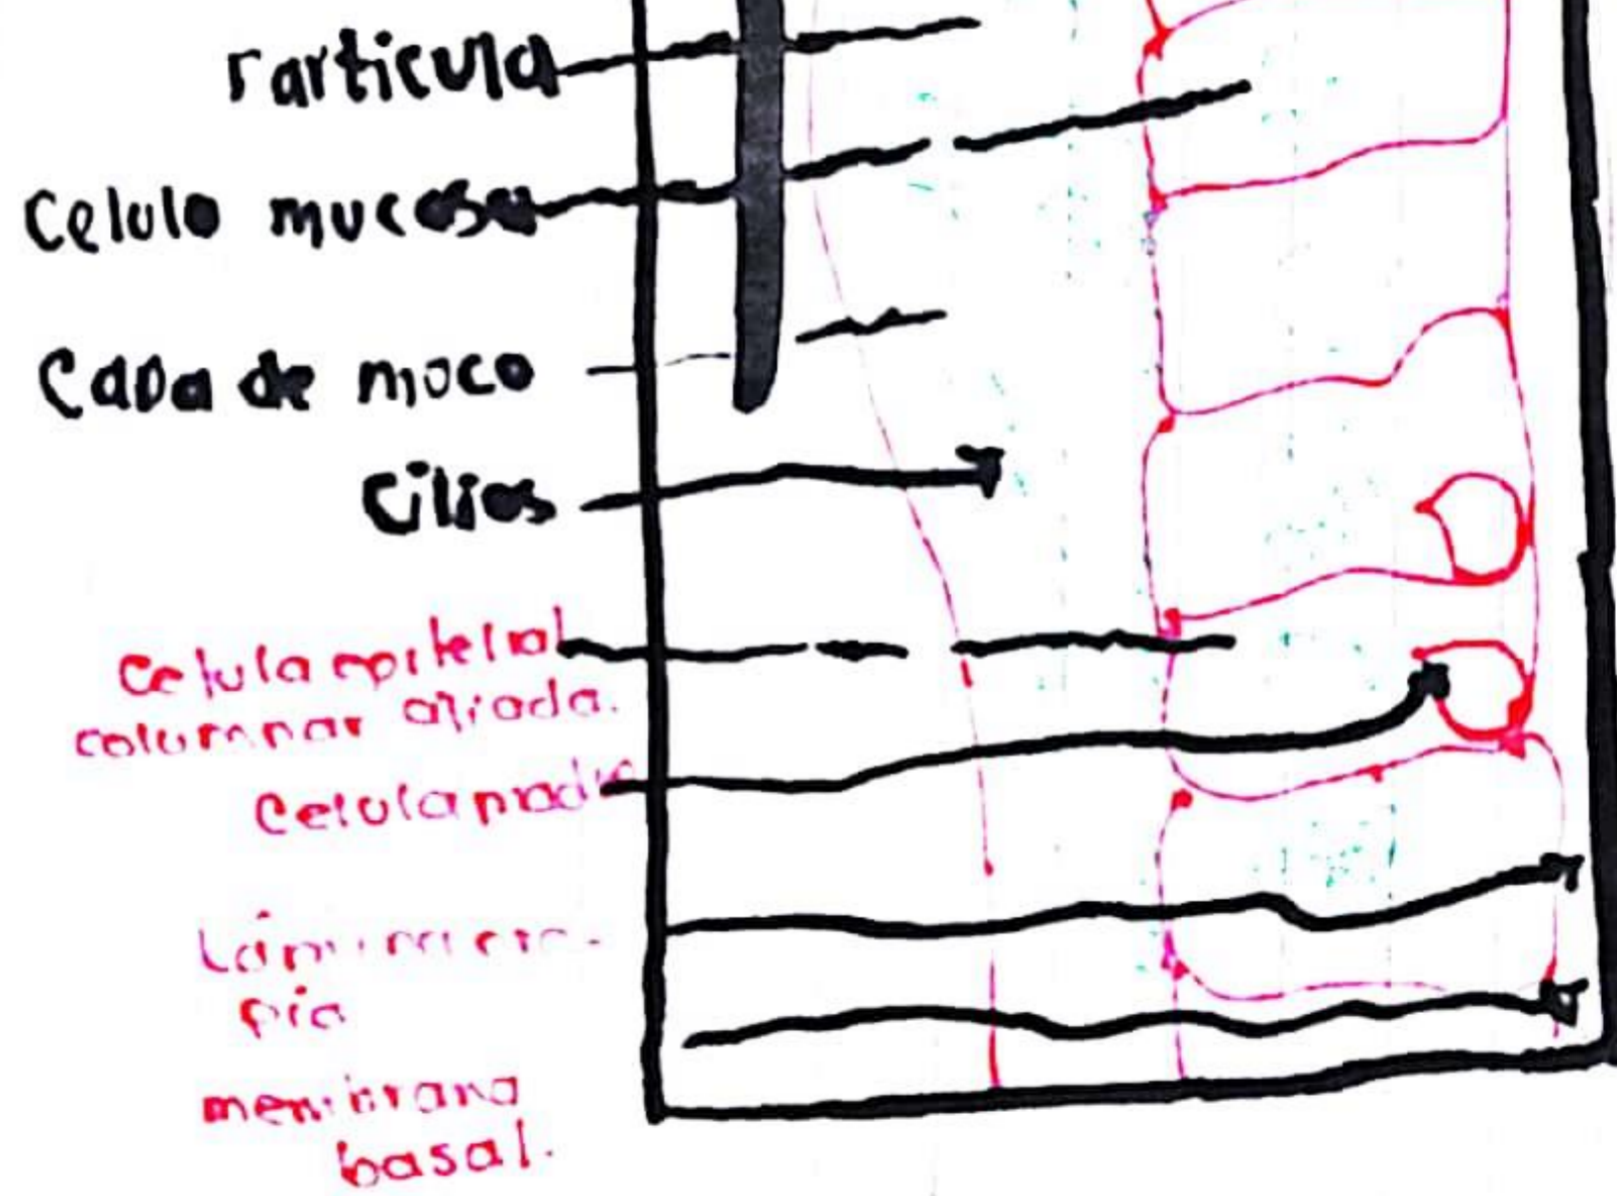 Partícula
Celula mucosa
Capa de moco
Cilios
Celula epitelial
columnar
Celula
Lámina
pia
membrana
basal.